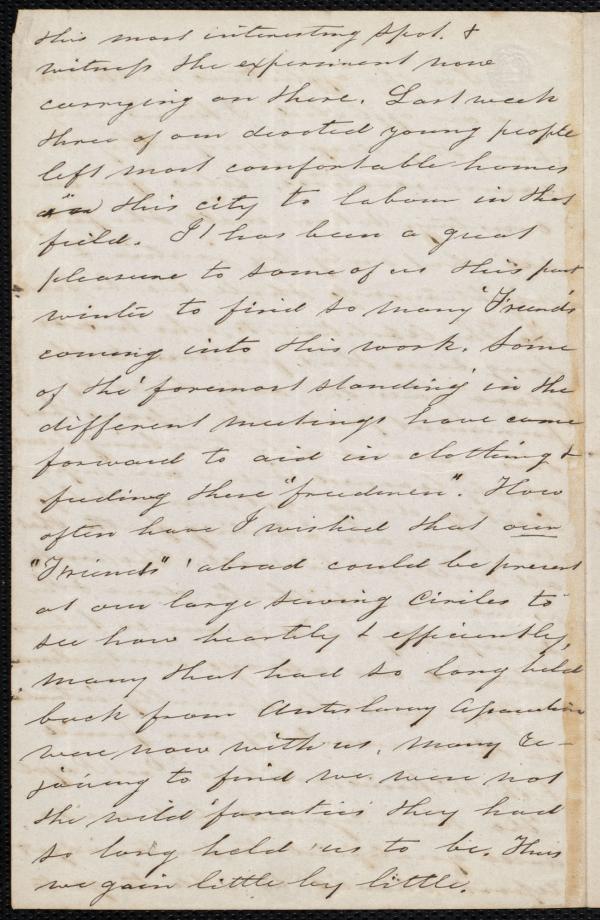 this most interesting spot. &
witness the experiment now
carrying on there. Last week
three of our devoted young people
left most comfortable homes
in this city to labour in that
field. It has been a great
pleasure to some of us this past
winter to find so many 'Friends
coming into this work. Some
of the 'foremost standing' in the
different meetings have come
forward to aid in clothing &
feeding these "freedmen". How
often have I wished that our
"Friends" abroad could be present
at our large sewing Circles to
see how heartily & efficiently,
many that had so long held
back from Antislavery Association
were now with us, many re-
joicing to find we were not
the wild 'fanatics' they had
so long held us to be. Thus
we gain little by little.